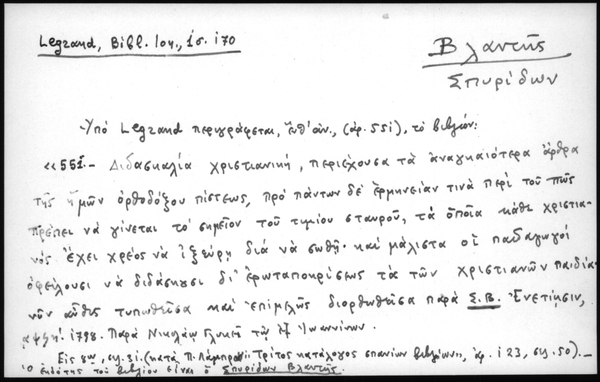 Legrand, Bibl. Ion., 1σ. 170
Βλαντής
Σπυρίδων
Υπό Legrand περιγράφεται, (άρ. 551), το βιβλίον:
«551.- Διδασκαλία χριστιανική, περιέχουσα τα αναγκαιότερα άρθρα
της ημών ορθοδόξου πίστεως, προ πάντων δε ερμηνείαν τινά περί του πώς
πρέπει να γίνεται το σημείον του τιμίου σταυρού, τα οποία κάθε χριστια-
νός έχει χρέος να ιξεύρη διά να σωθή· και μάλιστα οι παιδαγωγοί
οφείλουσι να διδάσκωσι δι' ερωταποκρίσεως τα των χριστιανών παιδία·
νυν αύθις τυπωθείσα και επιμελώς διορθωθείσα παρά Σ.Β. Ενετίησιν,
αψϟη'. 1798. Παρά Νικολάω Γλυκεί τω εξ Ιωαννίνων.
Εις 8ον, (κατά Π. Λάμπρον "Τρίτος κατάλογος σπανίων βιβλίων", άρ. 123, σελ. 50).-
Ο εκδότης του βιβλίου είναι ο Σπυρίδων Βλαντής.